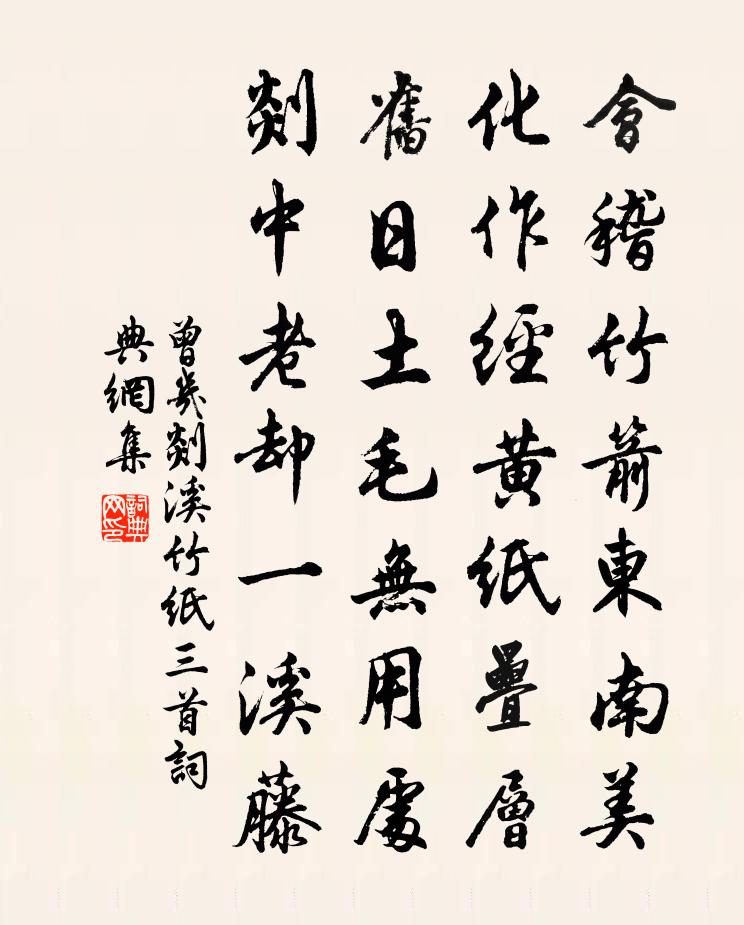 會稽竹箭東南美
化作經黃紙疊層
舊日土毛無用處
剡中老却一溪藤
曾幾剡溪竹紙三首詞
典網集
詞典網印